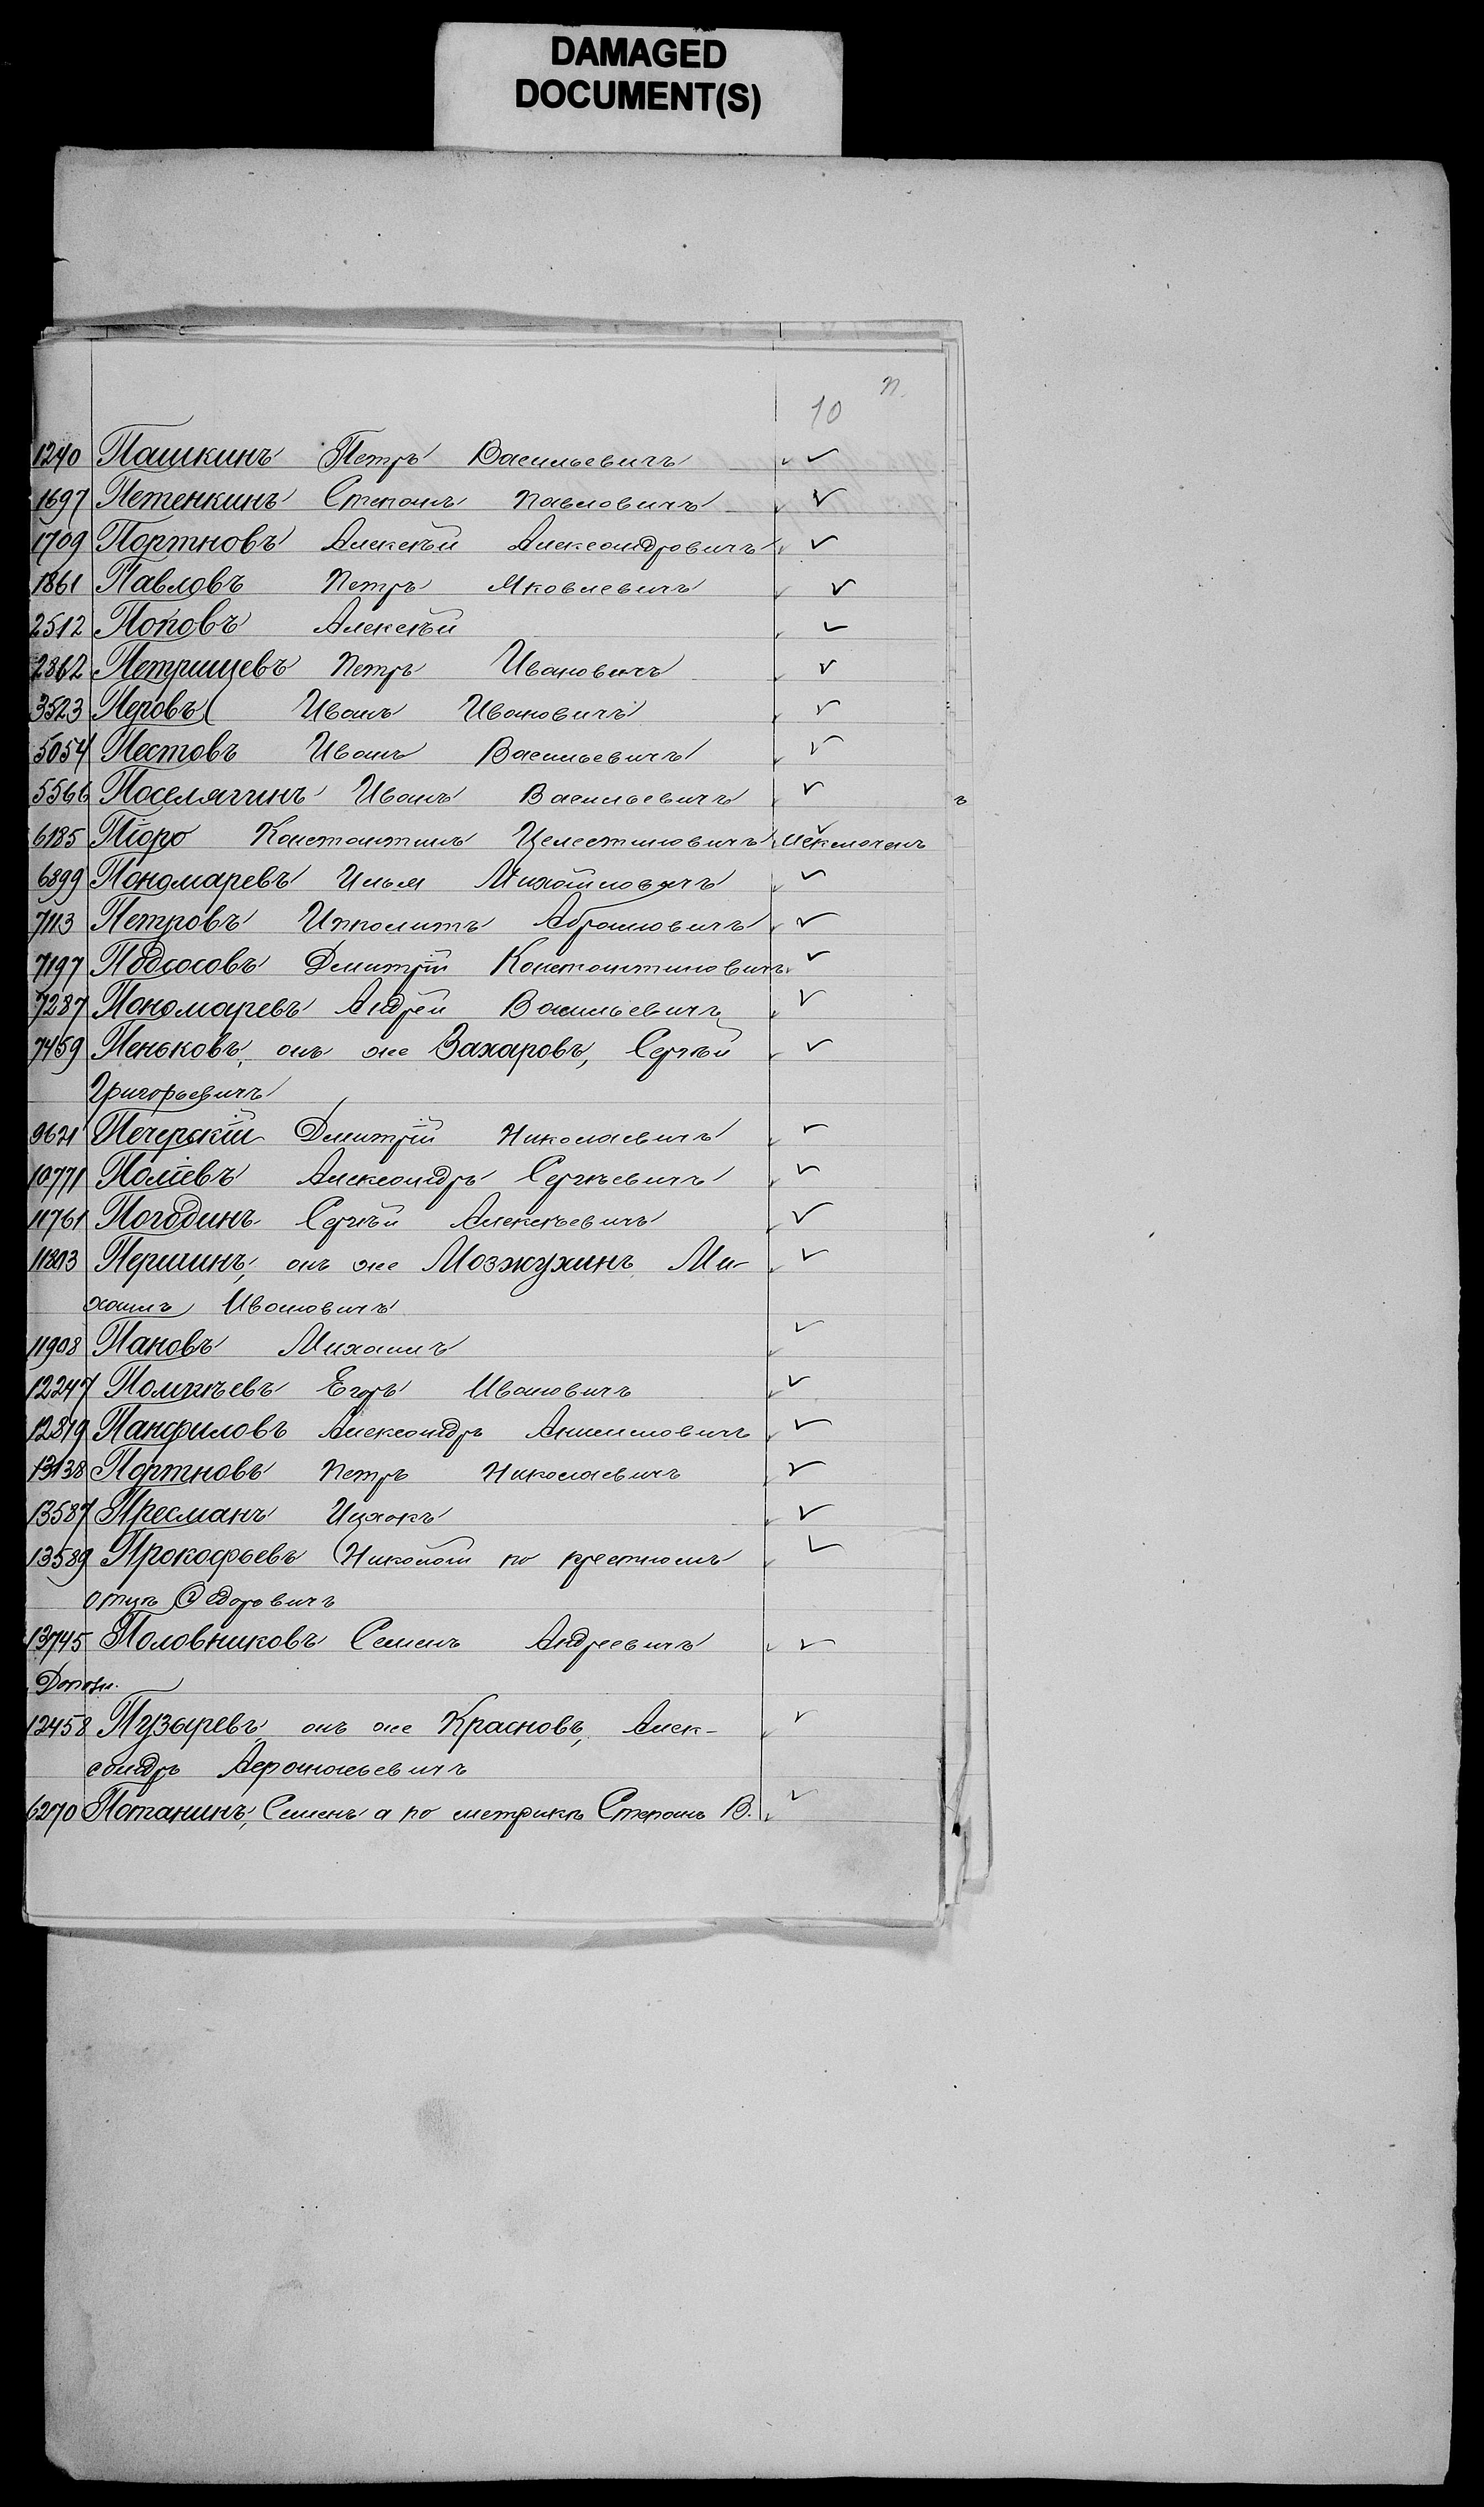 DAMAGED
DOCUMENT(S)
п.
10
1240 Пашкинъ Петръ Васильевичъ
1697 Петенкинъ Степанъ Павловичъ
1709 Портновъ Алексѣй Александровичъ
1861 Павловъ Петръ Яковлевичъ
2512 Поповъ Алексѣй
2862 Петрищевъ Петръ Ивановичъ
3523 Перовъ Иванъ Ивановичъ
5054 Пестовъ Иванъ Васильевичъ
5566 Поселягинъ Иванъ Васильевичъ
6185 Піоро Константинъ Целестиновичъ исключенъ
6899 Пономаревъ Илья Михайловичъ
7113 Петровъ Ипполитъ Абрамовичъ
7197 Подсосовъ Дмитрій Константиновичъ
7287 Пономаревъ Андрей Васильевичъ
7459 Пеньковъ, онъ же Захаровъ, Сергѣй
Григорьевичъ
9621 Печерскій Димитрій Николаевичъ
10771 Поліевъ Александръ Сергѣевичъ
11761 Погодинъ Сергѣй Алексѣевичъ
11803 Першинъ, онъ же Мозжухинъ Ми-
хаилъ Ивановичъ
11908 Пановъ Михаилъ
12247 Поликѣевъ Егоръ Ивановичъ
12819 Панфиловъ Александръ Анисимовичъ
13138 Портновъ Петръ Николаевичъ
13587 Пресманъ Ицхокъ
13589 Прокофьевъ Николай по крестномъ
отцѣ Ѳедоровичъ
13745 Половниковъ Семенъ Андреевичъ
Дополн.
12458 Пузыревъ, онъ же Красновъ, Алек-
сандръ Аѳанасьевичъ
6270 Потанинъ, Семенъ а по метрикѣ Степанъ В.